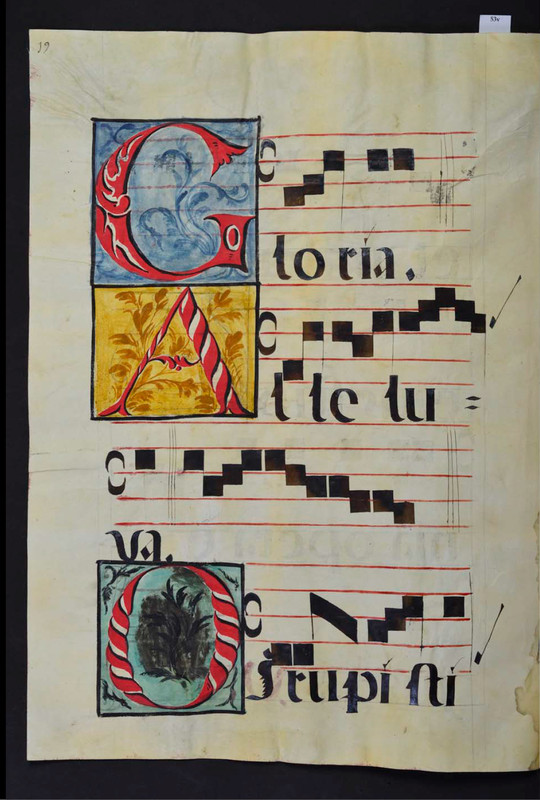 53v
Gloria.
Alle lu=
ya.
Dirupisti